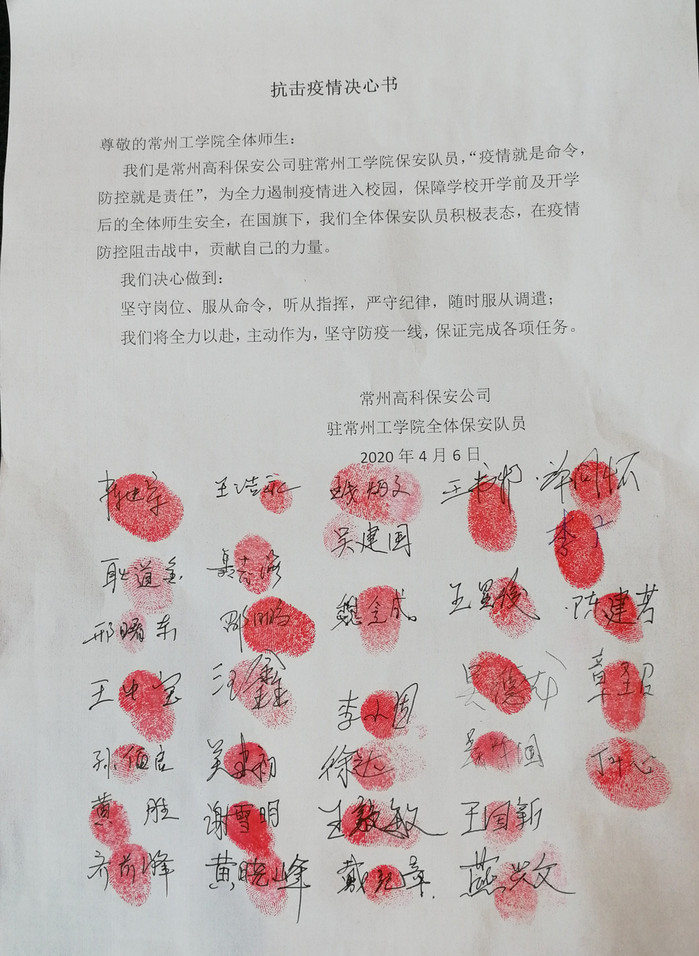 抗击疫情决心书
尊敬的常州工学院全体师生：
我们是常州高科保安公司驻常州工学院保安队员，“疫情就是命令，
防控就是责任”，为全力遏制疫情进入校园，保障学校开学前及开学
后的全体师生安全，在国旗下，我们全体保安队员积极表态，在疫情
防控阻击战中，贡献自己的力量。
我们决心做到：
坚守岗位、服从命令，听从指挥，严守纪律，随时服从调遣；
我们将全力以赴，主动作为，坚守防疫一线，保证完成各项任务。
常州高科保安公司
驻常州工学院全体保安队员
2020 年 4 月 6 日
王浩永
吴建国
耿道金
邢曙东 邵鹏 魏金成 陈建芳
汪鑫 李小国 章超
徐达
黄胜 谢雪明 王敏敏 王国新
齐前峰 黄晓峰 戴纪章 燕兴文